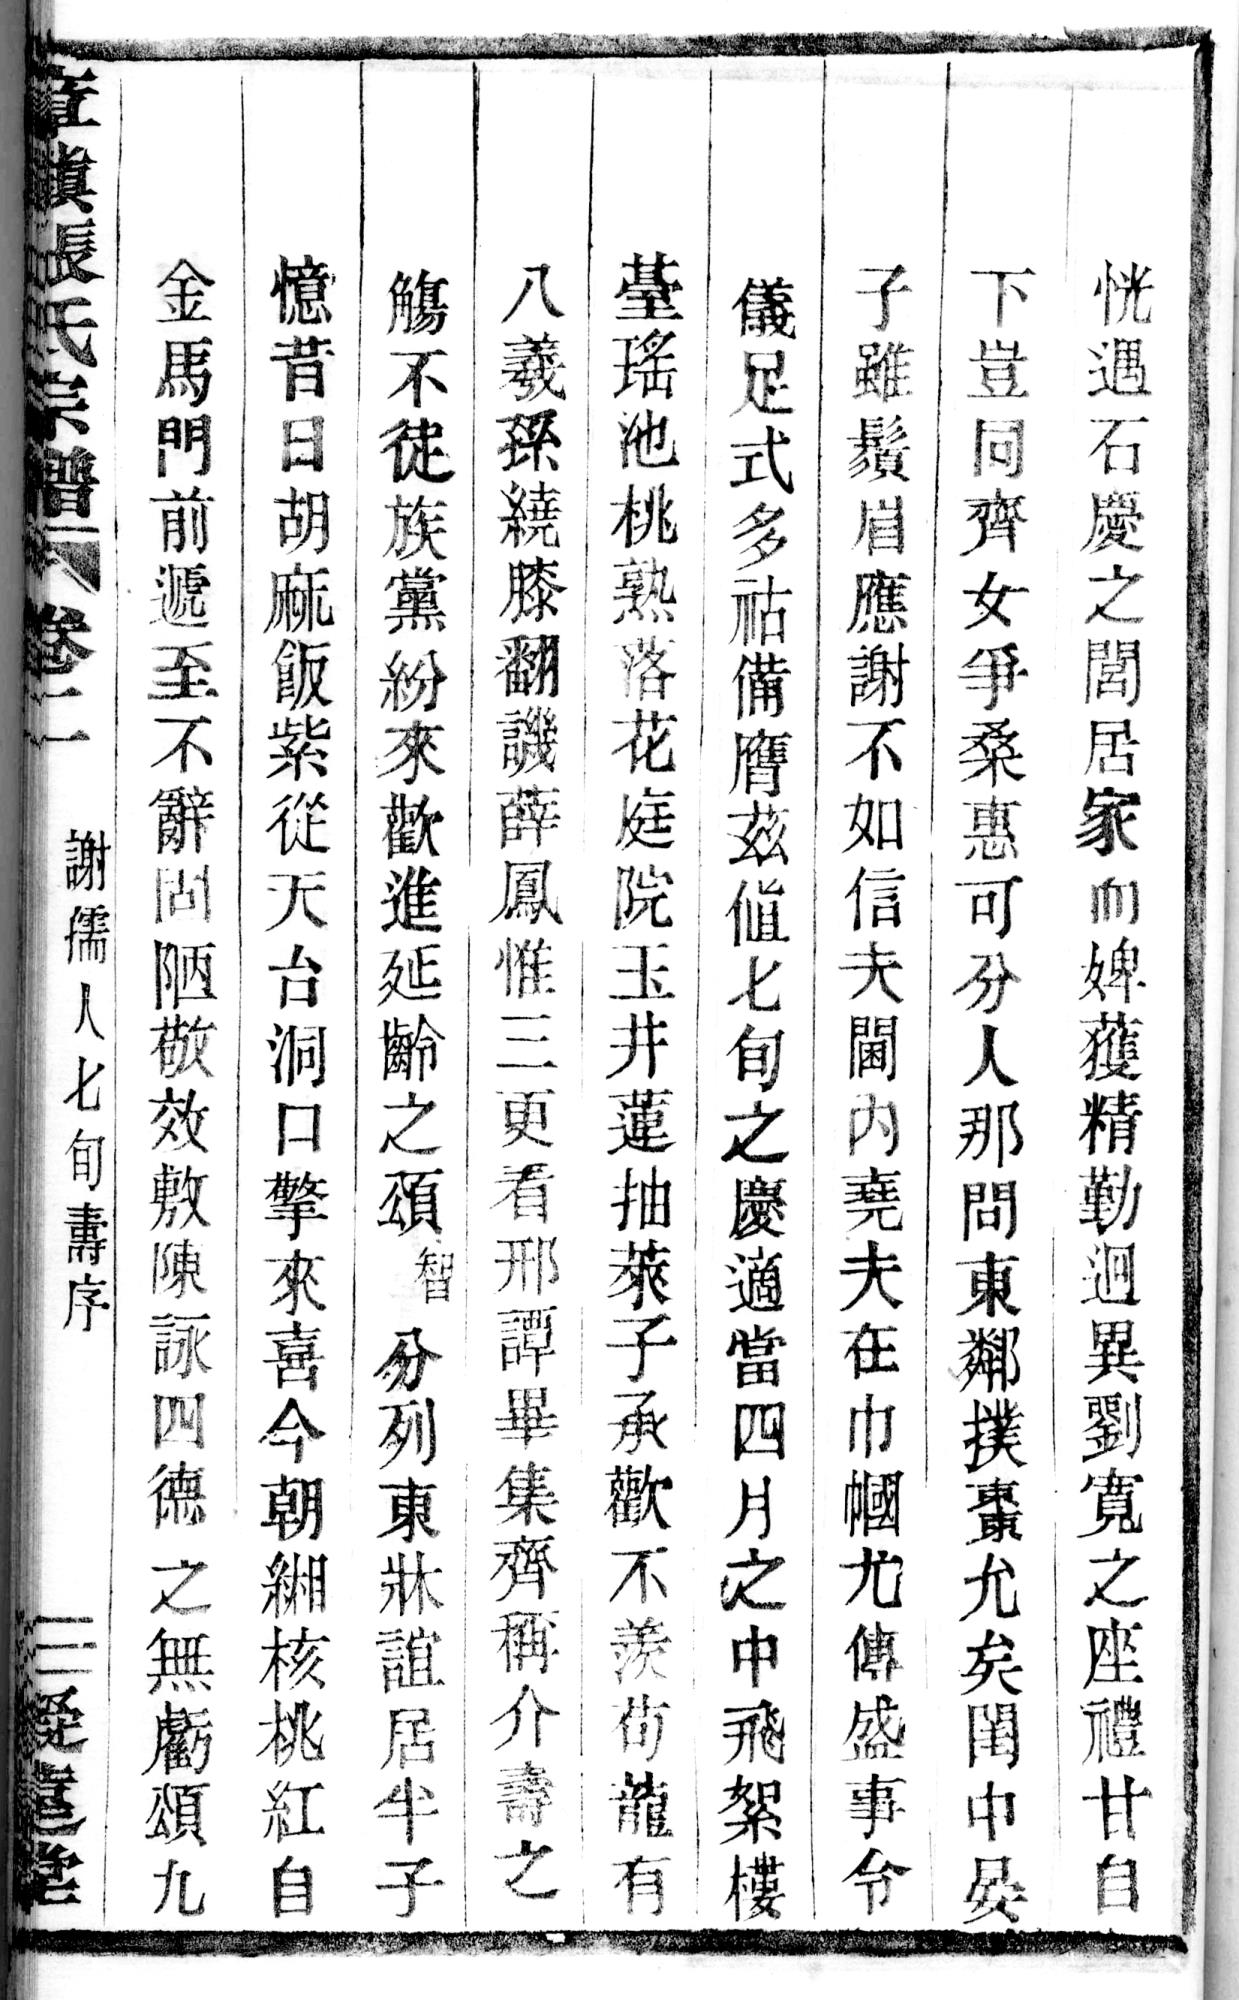 恍遇石慶之閭居家而婢獲精勤迴異劉寬之座禮甘自
下豈同齊女爭桑惠可分人那問東鄰撲棗允矣閨中晏
子雖鬚眉應謝不如信夫閫內堯夫在巾幗尤傳盛事令
儀足式多祜備膺茲值七旬之慶適當四月之中飛絮樓
臺瑤池桃熟落花庭院玉井蓮抽萊子承歡不羨荀龍有
八羲孫繞膝翻譏薛鳳惟三更看邢譚畢集齊稱介壽之
觴不徒族黨紛來歡進延齡之頌智分列東牀誼居半子
憶昔日胡麻飯紫從天台洞口擎來喜今朝緗核桃紅自
金馬門前遞至不辭固陋敬效敷陳詠四德之無虧頌九
張氏宗譜 卷二 謝孺人七旬壽序 三 堂